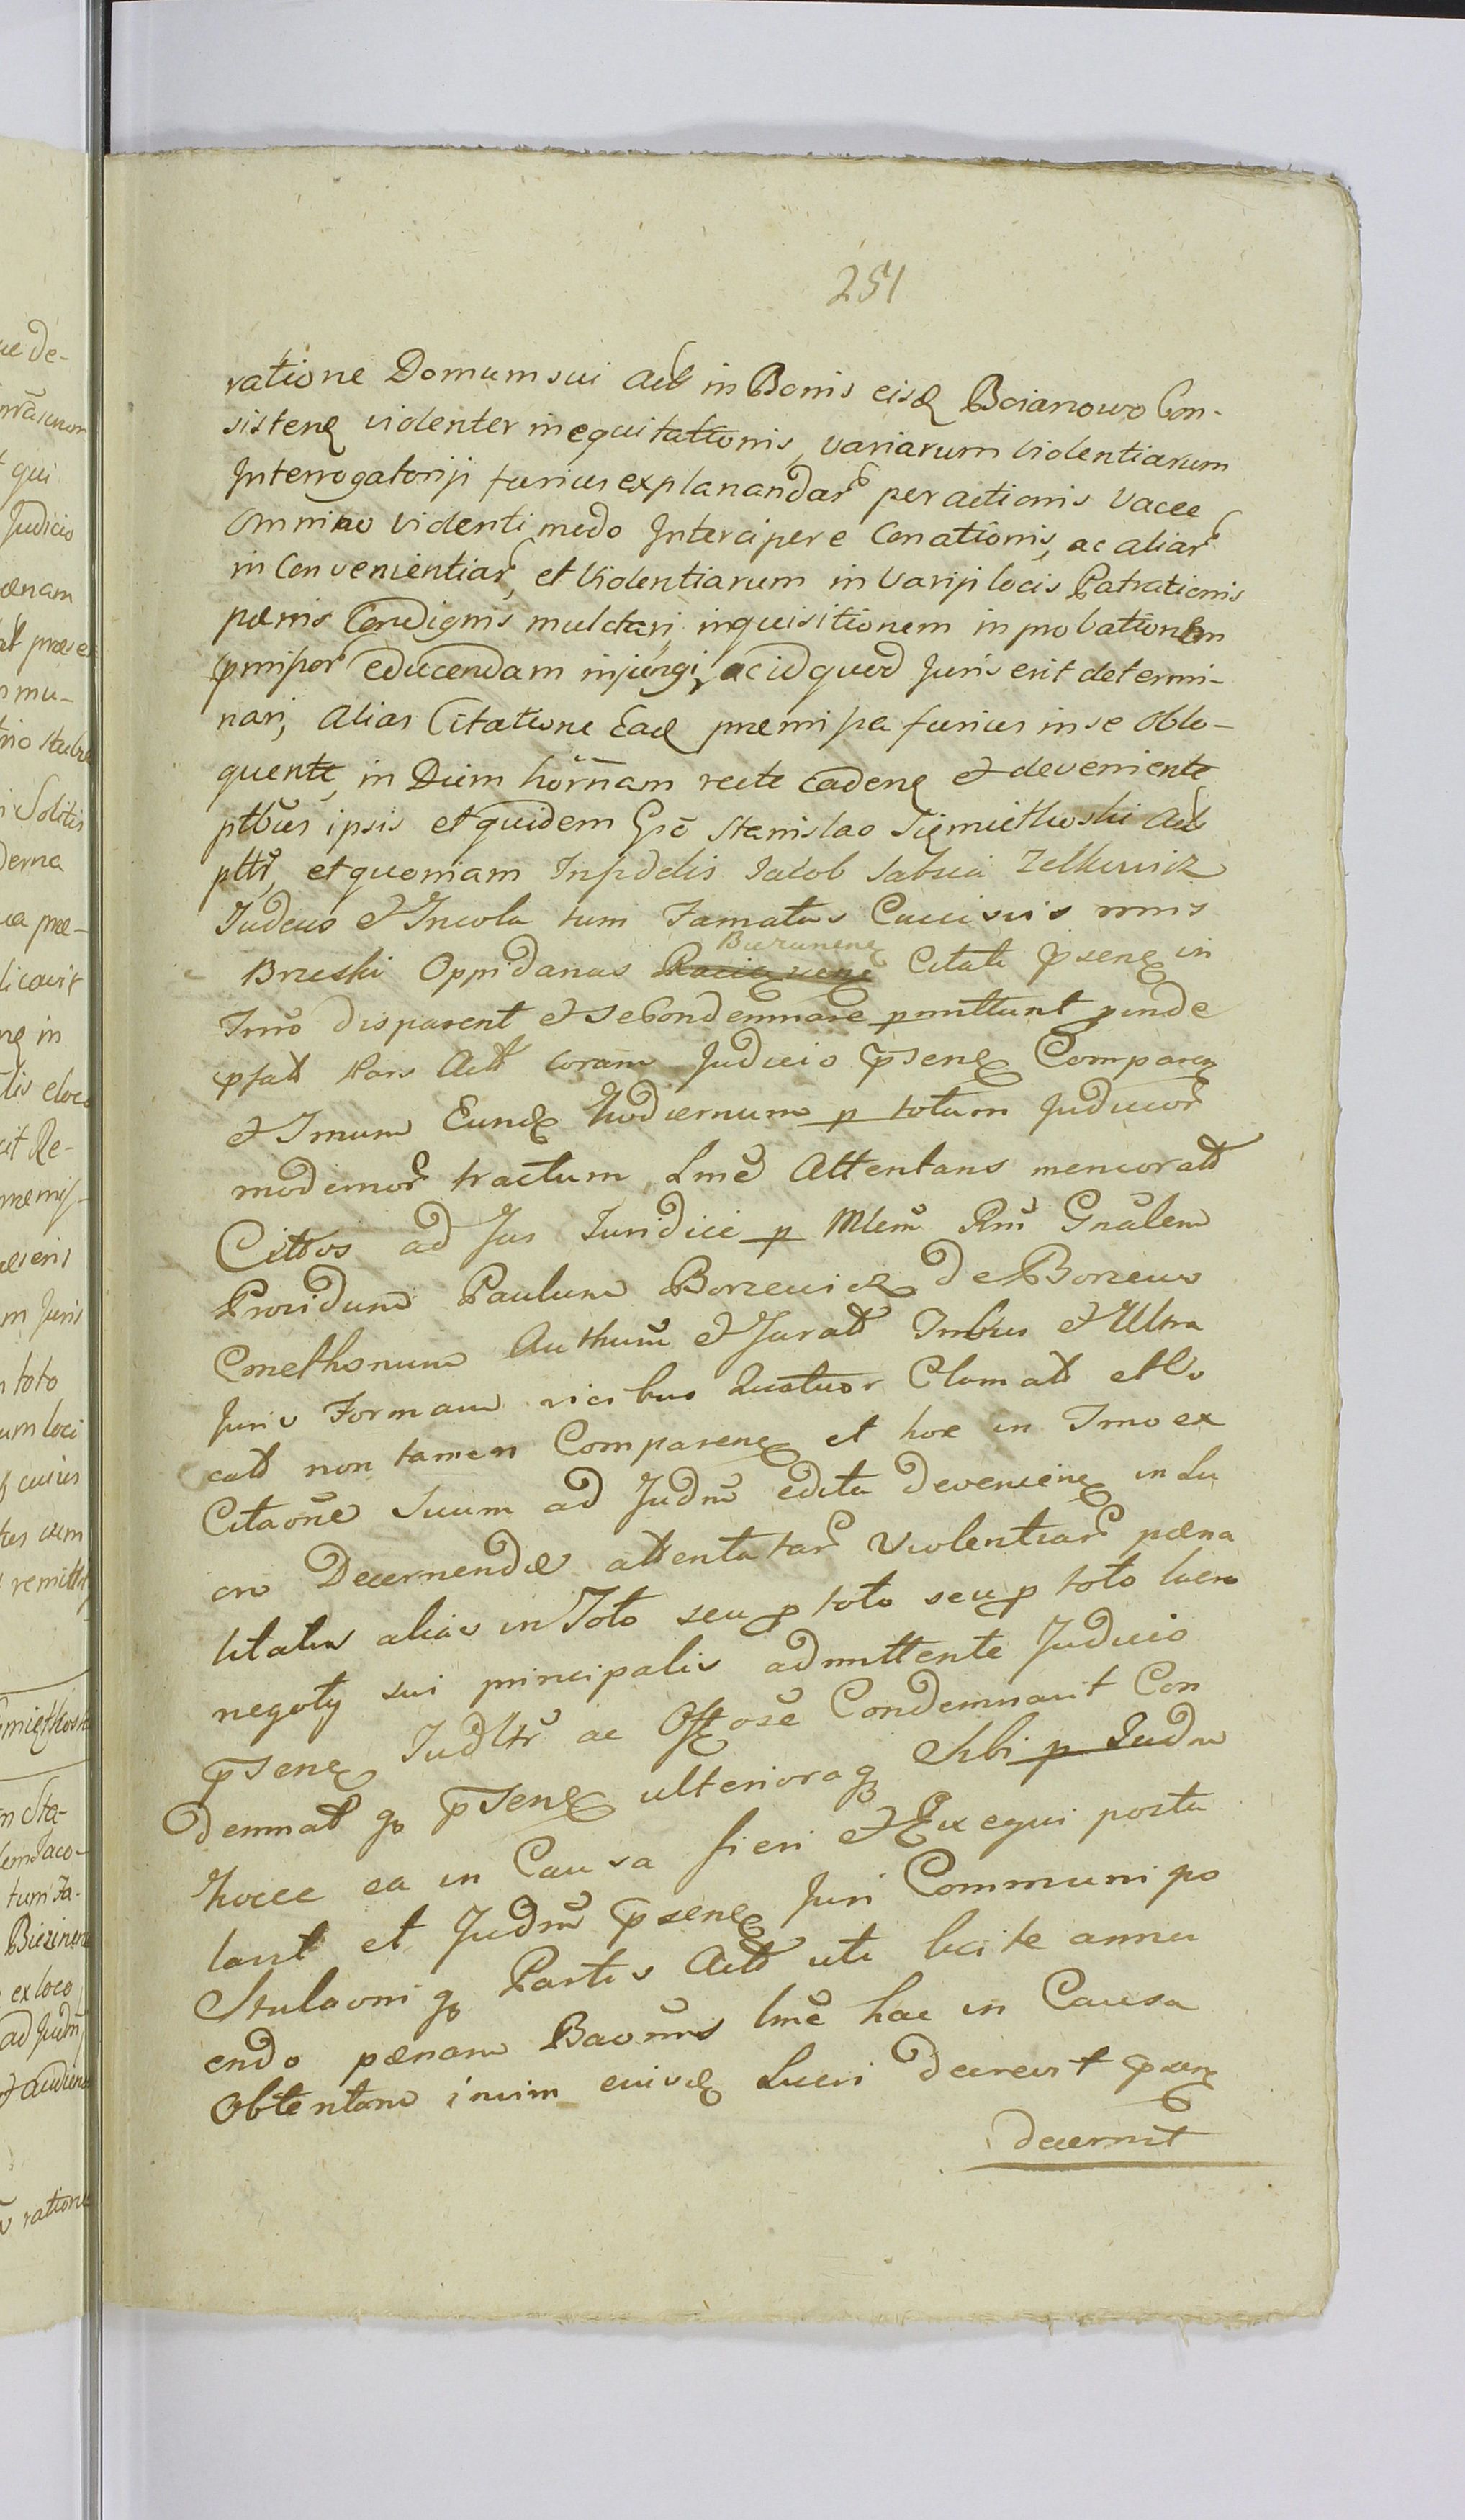 251
ratione Domum sui Act in Bonis eisd Boianowo Con-
sisten violenter inequitationis, variarum violentiarum
Interrogatoriji fusius explanandar peractionis Vacce
omnino violenti modo Intercipere Conationis, ac aliar
inConvenientiar, et Violentiarum in Varijs locis Patrationis
pænis Condignis mulctari, inquisitionem in probationem
pmissor educendam injungi, ac id quod Juris erit determi-
nari, Alias Citatione Ead præmissa fusius in se oblo-
quente, in Diem hornam recte Caden et deveniente
ptbus ipsis et quidem Gso Stanislao Act
pttr, et quoniam Infidelis Jacob Zelkowicz
Judeus et Incola tum Famatus
Brzeski Oppidanus Citati psen in
Tmo disparent et se Condemnare pmittunt pinde
psatt Pars Act coram Judicio psen Comparen
et Tmum Eund hodiernum p totum Judicior
modernor tractum Lme Attentans memoratt
Cittos ad Jus Juridice p Mlem Rni Gnalem
Providum Paulum Borzewicz de Borzewo
Cmethonum Authum et Juratt Tribus et Ultra
Juris Formam vicibus Quatuor Clamatt et Vo
catt non tamen Comparen et hoc in Tmo ex
Citaone Suum ad Judm edita devenien in Lu
cro Decernendæ attentatar Violentiar pæna
litatis alias in Toto seu p toto seu p toto lucro
negotij sui principalis admittente Judicio
psen Judltr ac Offose Condemnavit Con
demnat q psen ulterioraq Sibi p Judm
hocce ea in Causa fieri et Exequi postu
lavit et Judm psen Juri Communi po
stulaoni q Partis Act uti licite annu
endo pænam Baonis lme hac in Causa
Obtentam in vim eiusd Lucri decrevit psen
decernit